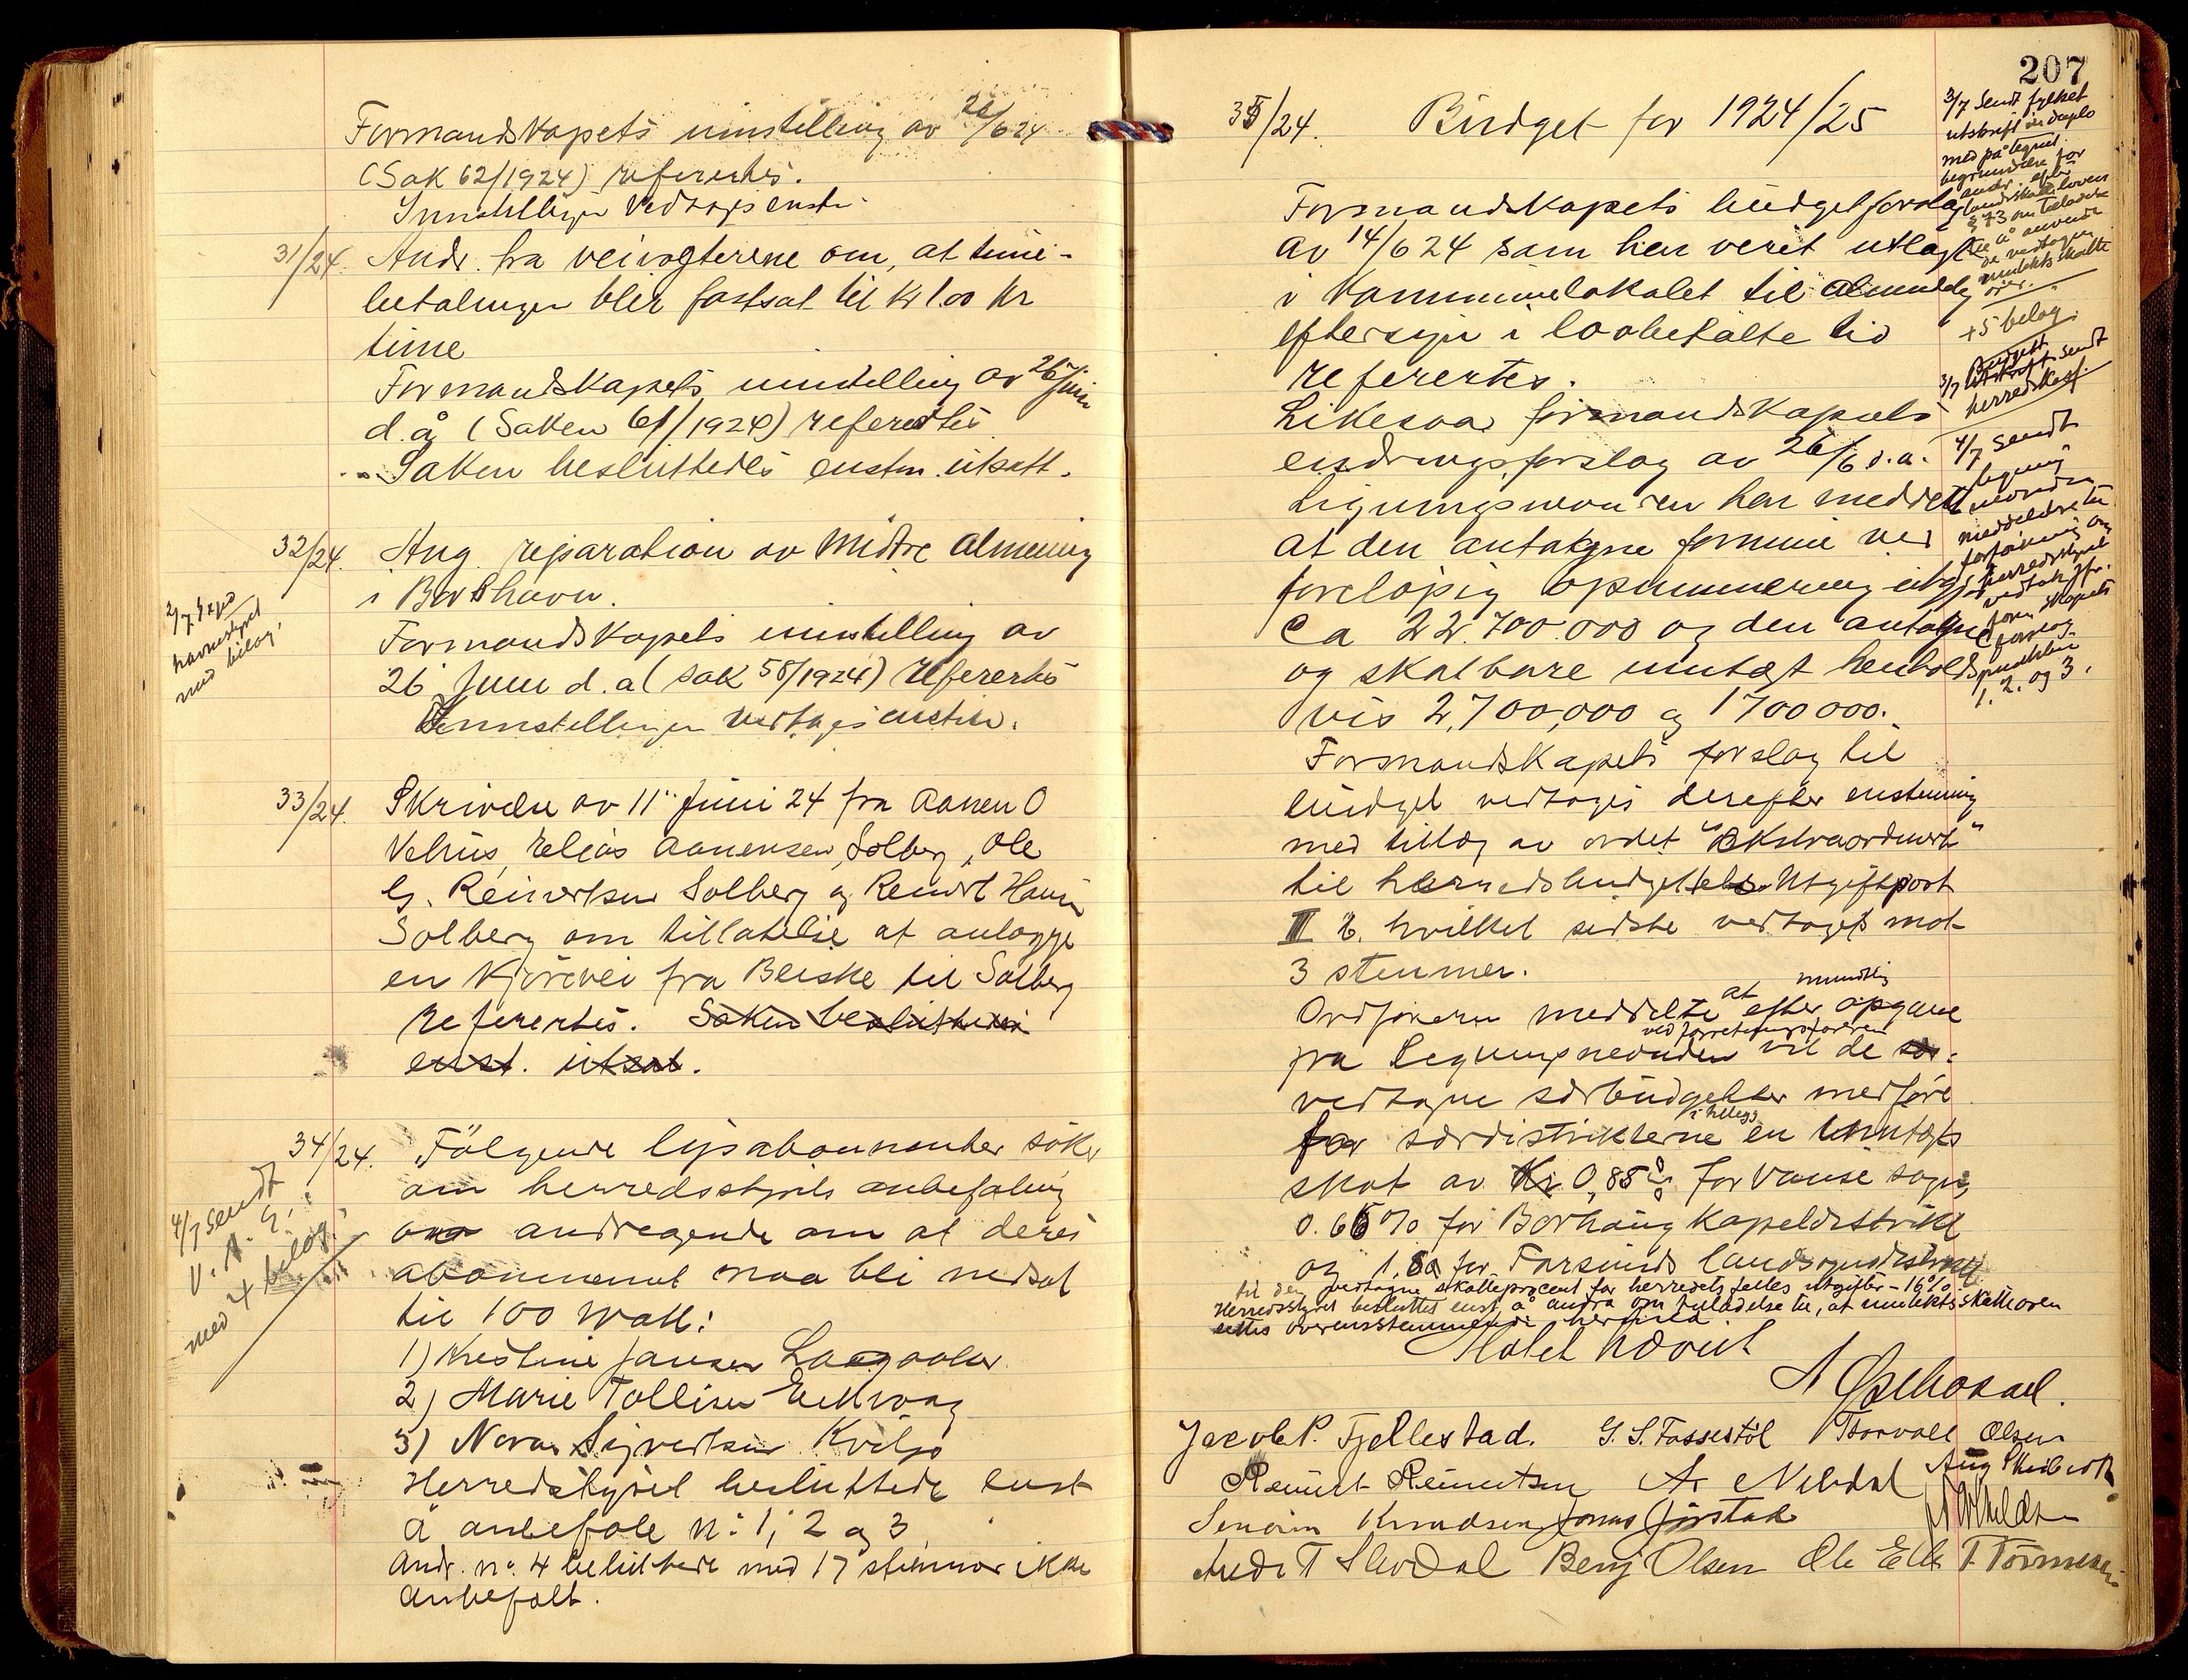 Formandskapets innstelling av 26/6 24
(Sak 62/1924) refereertes.
Innstillingen Vedtages enst.
31/24. Andr. fra veivogterene om, at time-
betalingen blir fastsat til Kr 1.00 pr
time
Formandskapets innstelling av 26 juni
d.å (Saken 61/1924) refereertes
Saken besluttedes enstm. utsatt.
32/24. Ang. reparation av Midtre almening
i Borshavn.
2/7. 
havnestyret
med bilag.
Formandskapets innstelling av
26 Juni d.a (sak 58/1924) refereertes
Innstellingen vedtages enstm.
33/24. Skrivelse av 11. Juni 24 fra Aanen O
Velnes, Elias Aanensen, Solberg, Ole
G. Reinertsen Solberg og Reinert Hansen
Solberg om tillatelse at anlægge
en kjørevei fra Beiske til Solberg
Refereertes. Saken besluttedes
enst. utsat.
34/24. Følgende lysabonnenter søker
om herredsstyrets anbefaling
4/7 sendt
V. A. E.
med 4 bilag.
 andragende om at deres
abonnement maa bli nedsat
til 100 Watt:
1) Kristine Jansen 
2) Marie Tollisen Eikvaag
3) Nora Sigvertsen Kviljo
Herredstyret besluttede enst
å anbefale no. 1, 2 og 3
Andr. no. 4 besluttede med 17 stemmer ikke
anbefalt.
207
35/24. Budget for 1924/25
3/7 Sendt fylket
utskrift in duplo
med påtegnet
begrundelse for
andr. efter
landsskatteloven
§ 73 om tilladelse
til å anvende
de vedtagne
inntektsskatte
ører.
+5 belag.
3/7 Budgett
utskrift sendt
herredskass.
4/7 sendt
ligning
nevnden
meddelelse til
forføining om
herredstyrets
vedtak fra
formskapets
forslag
punkter
1. 2. og 3.
Formandskapets budgetforslag
av 14/6 24 som har verit utlagt
i Kommunelokalet til almindelig
eftersyn i lovbefalte tid
refereertes.
Likesaa formandskapets
endringsforslag av 26/6 d.a.
Ligningsnevnden har meddelt
at den antagne formue ved
foreløpig opsummering utgjør
Ca 22.700.000 og den antagne
og skatbare inntægt henholds
vis 2,700,000 og 1700000.
Formandskapets forslag til
budget vedtages derefter enstemmig
med tillæg av ordet "Ekstraordinært"
til herredsbudgettets Utgiftspost
III b. hvilket sidste vedtages mot
3 stemmer.
Ordføreren meddelte at efter mundtlig opgave
fra Ligningsnevnden ved forretningsføreren vil de
vedtagne særbudgetter medføre
for særdistrikterne i tillegg en inntægts
skat av 0,85 % for Vanse sogn,
0.65 % for Borhaug Kapeldistrikt
og 1.80 for Farsunds landsognsdistrikt
til den vedtagne skatteprocent for herredets felles utgifter - 16%
Herredsstyret besluttet enst. å andra om tilladelse til, at inntektsskatteøren
settes overensstemmende hermed
Møtet hævet
A Østhassel.
Jacob P. Fjellestad. G. S. Tassestöl Thorvall Olsen
Reinert Reinertsen Ar Nebdal Aug
Severin Knudsen Jonas Jørstad
Andr T Slevdal Benj Olsen Ole Eik T. Tønnessen